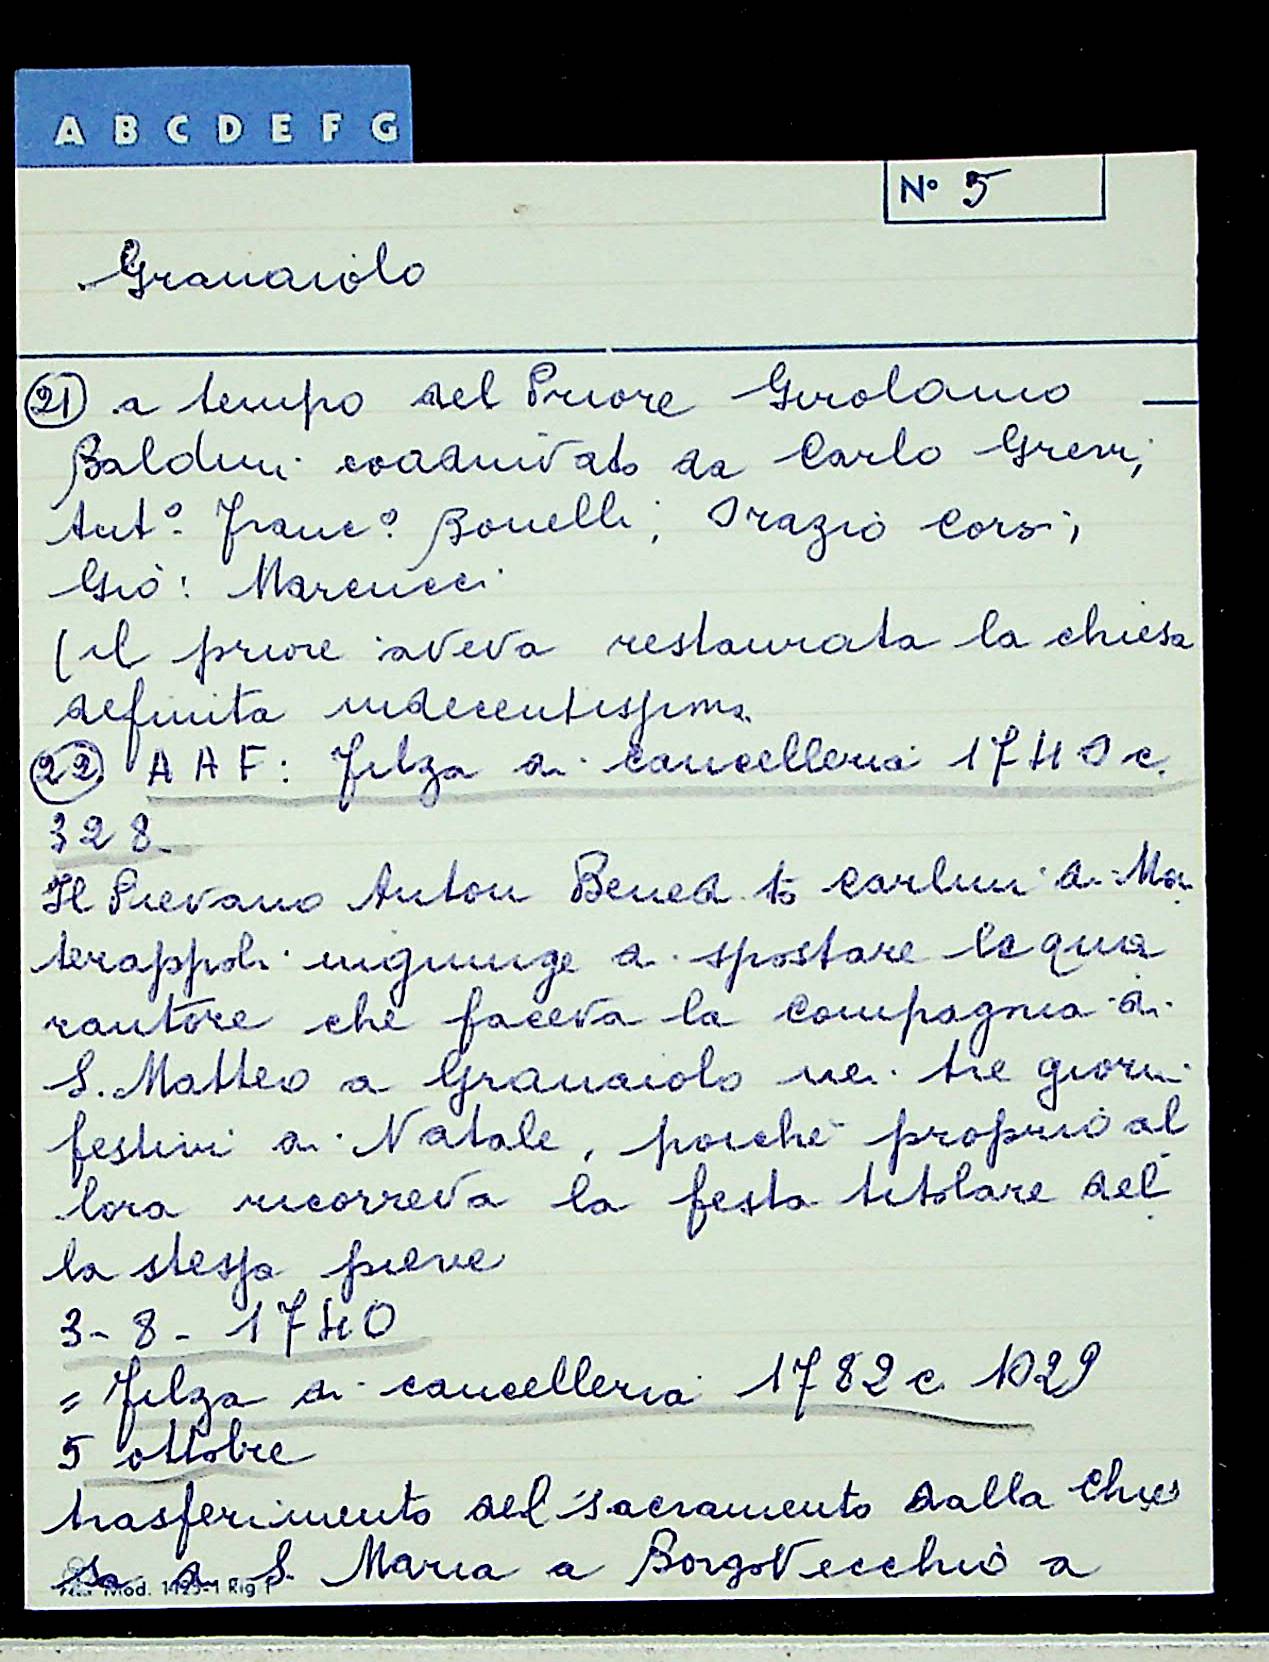 A B C D E F G
N° 5
Granaiolo
21) a tempo del Priore Girolamo
Baldini coadiuvato da Carlo
Ant.º Franc.º Bonelli; Orazio Corsi;
Gio: Marcucci
(il priore aveva restaurata la chiesa
definita indecentissima
22) A A F: Filza di cancelleria 1740 c.
328
Il Pievano Anton Bened.to Carlini di Ma
terappoli ingiunge di spostare le qua
rantore che faceva la compagnia di
S. Matteo a Granaiolo nei tre giorni
festivi di Natale, poiché proprio al
lora ricorreva la festa titolare del
la stessa pieve
3-8-1740
= Filza di cancelleria 1782 c. 1029
5 ottobre
trasferimento del sacramento dalla Chie
sa di S. Maria a BorgoVecchio a
Mod. Rig